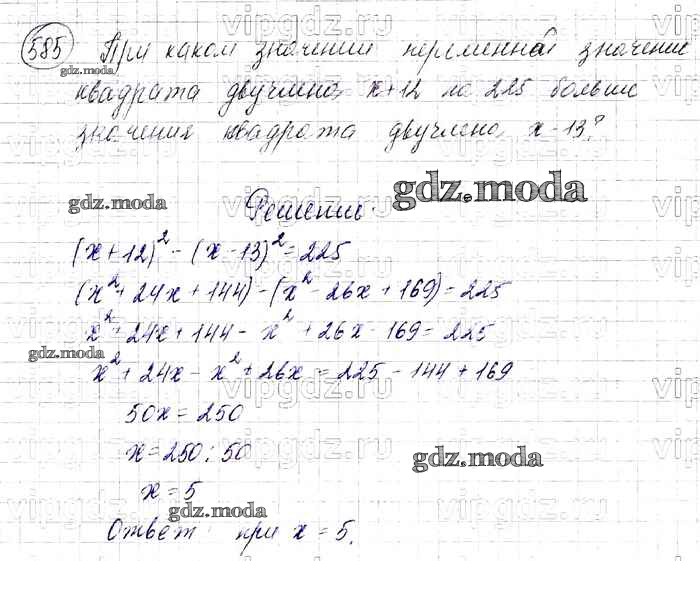 585 При каком значении переменной значение
gdz.moda
квадрата двучлена x+12 на 225 больше
значения квадрата двучлена x-13?
gdz.moda gdz.moda
Решение.
(x+12)²-(x-13)²=225
(x²+24x+144)-(x²-26x+169)=225
x²+24x+144-x²+26x-169=225
gdz.moda
x²+24x-x²+26x=225-144+169
50x=250
x=250:50
gdz.moda
x=5
gdz.moda
Ответ при x=5.
vipgdz.ru